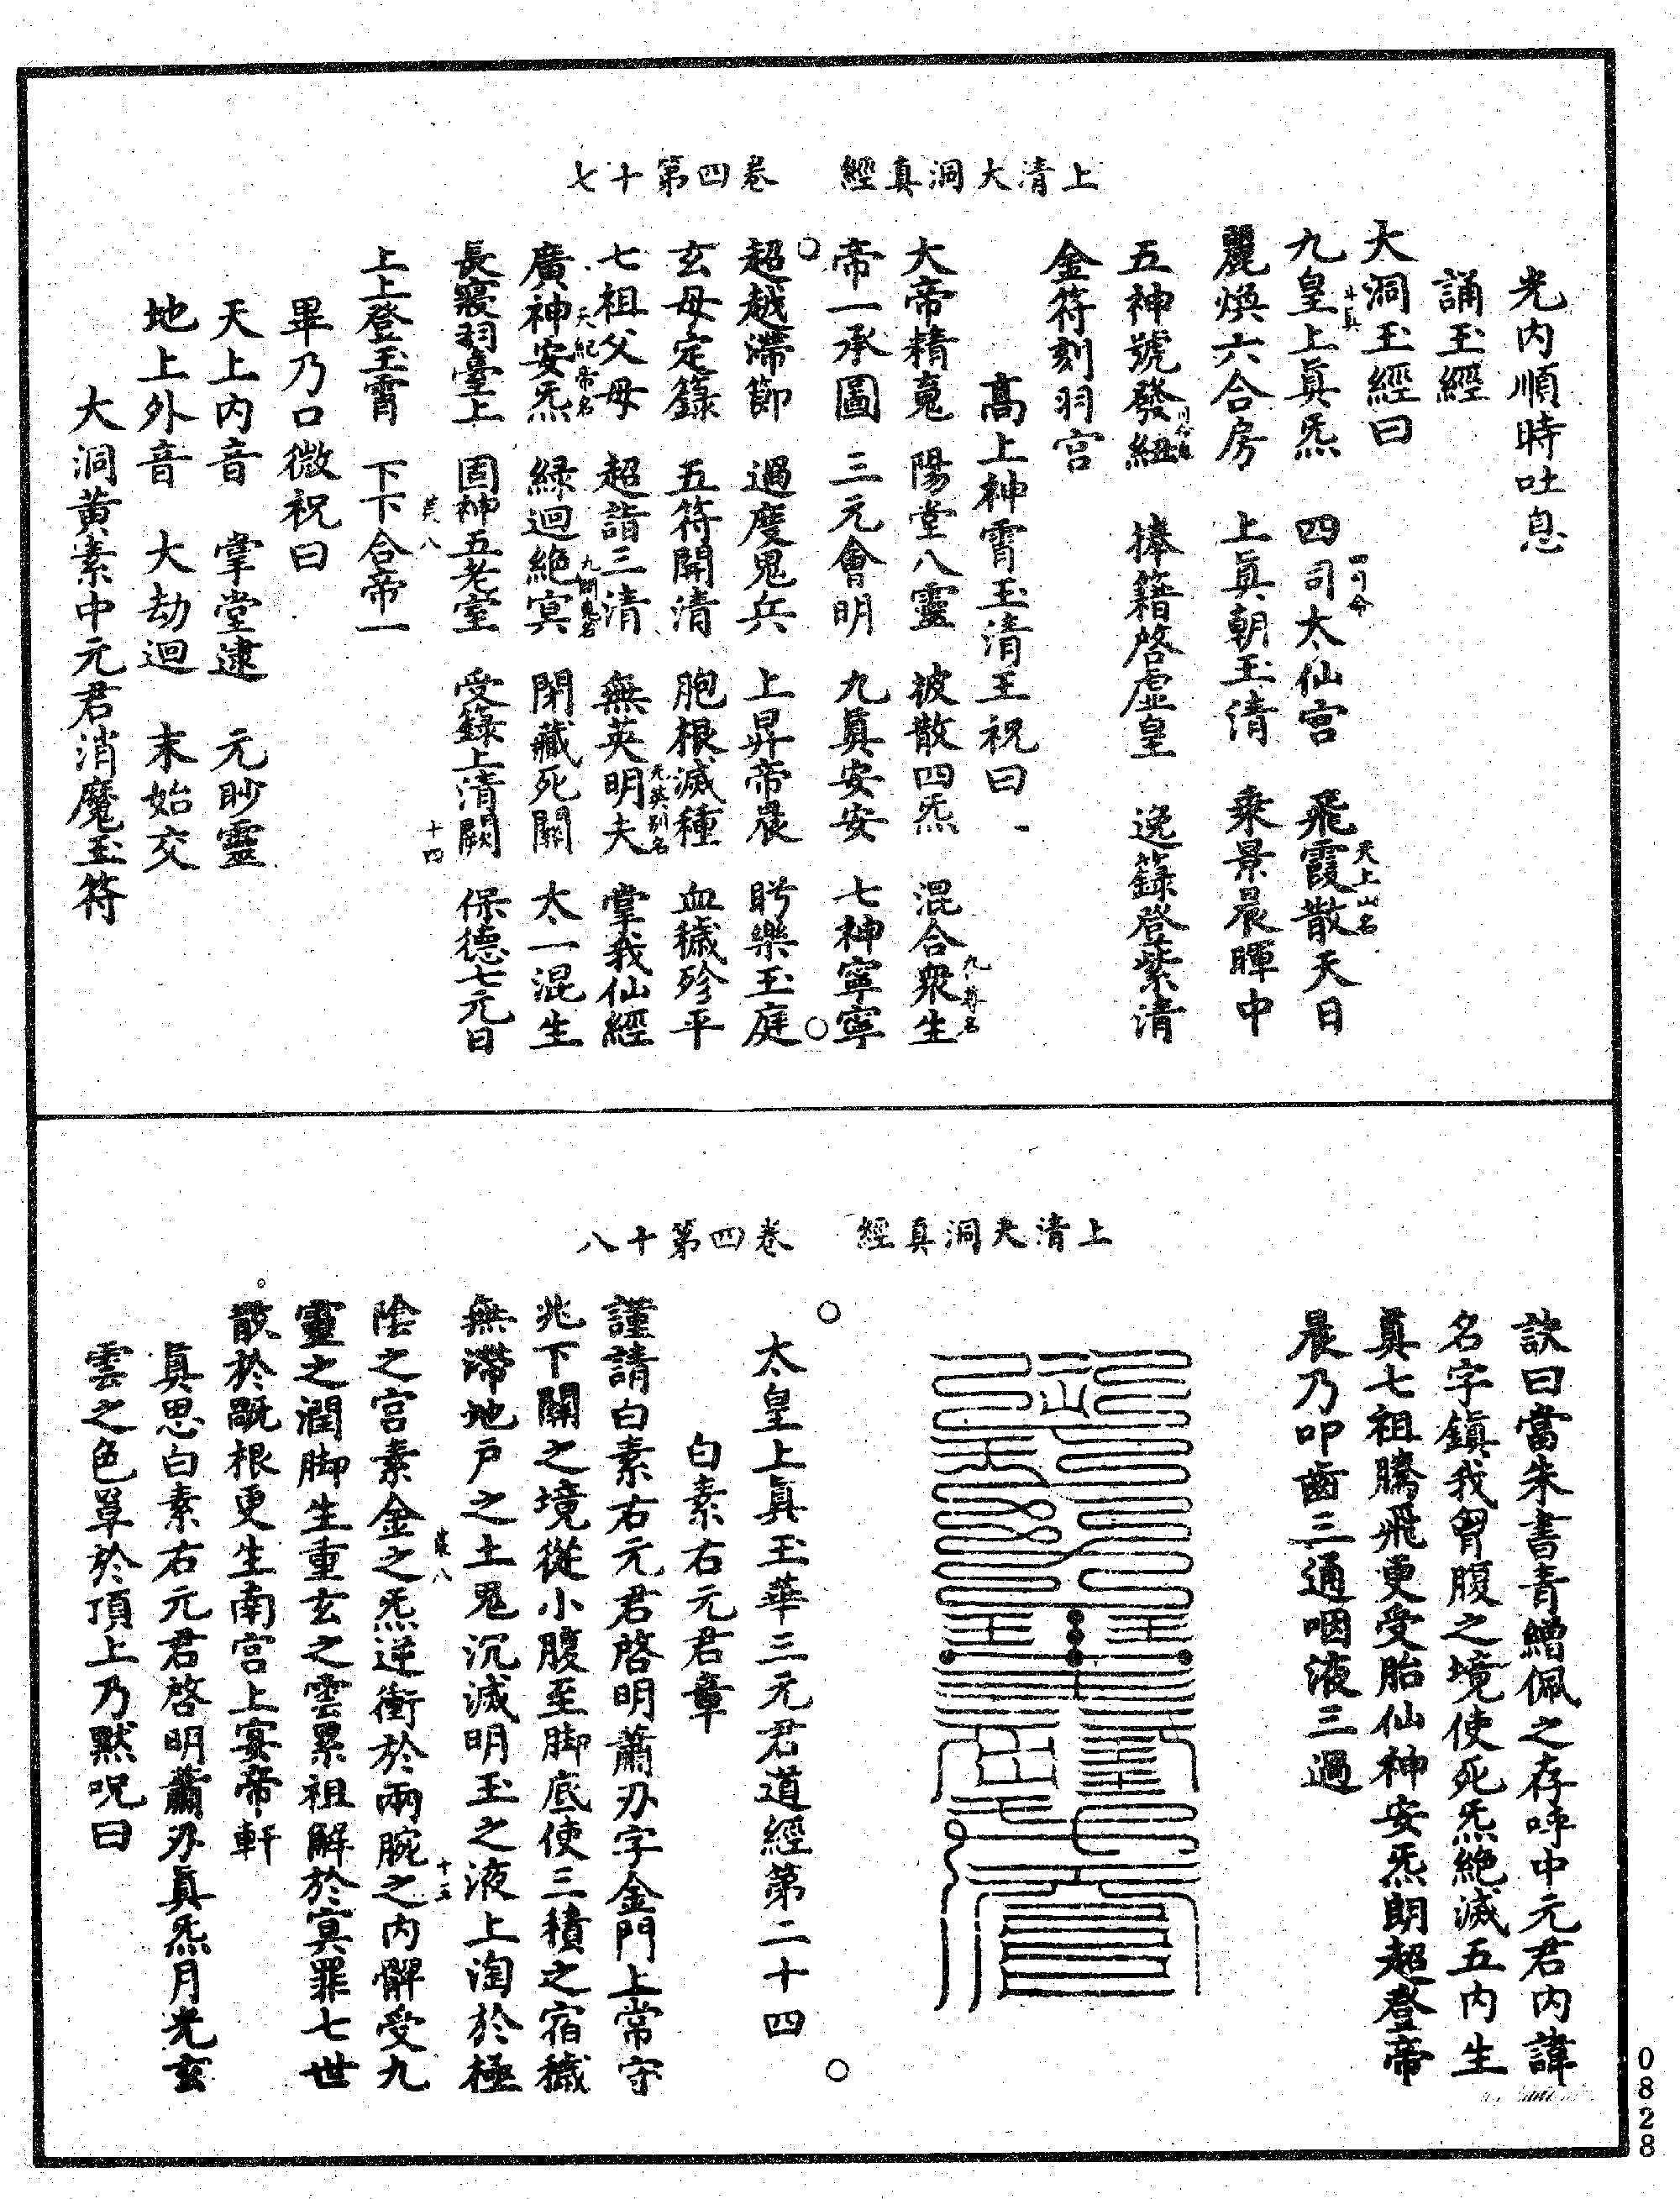 上清大洞真經　卷四第十七
光内順時吐息
誦玉經
大洞玉經曰
九皇上眞炁　四司太仙宫　飛霞散天日
四司命　天上山名
麗煥六合房　上眞朝玉清　乘景晨暉中
五神號發紐　捧籍啓虛皇　逸籙登紫清
金符刻羽宫
高上神霄玉清王祝曰
大帝精䰟　陽堂八靈　披散四炁　混合衆生
帝一承圖　三元會明　九眞安安　七神寧寧
超越滯節　過度鬼兵　上昇帝晨　盻樂玉庭
玄母定籙　五符開清　胞根滅種　血穢殄平
七祖父母　超詣三清　無英明夫　掌我仙經
廣神安炁　緑迴絶冥　閉藏死關　太一混生
天紀帝名
長寢羽臺上　固神五老室　受籙上清闕　保德七元日
上上登玉霄　下下合帝一
八　十四
畢乃口微祝曰
天上内音　掌堂逮　元眇靈
地上外音　大劫迴　末始交
大洞黄素中元君消魔玉符
上清大洞真經　卷四第十八
訣曰當朱書青繒佩之存呼中元君内諱
名字鎮我胃腹之境使死炁絶滅五内生
眞七祖騰飛更受胎仙神安炁朗超登帝
晨乃叩齒三通咽液三過
太皇上眞玉華三元君道經第二十四
白素右元君章
謹請白素右元君啓明蕭刃字金門上常守
兆下關之境從小腹至脚底使三積之宿穢
無滯地戶之土鬼沉滅明玉之液上淘於極
陰之宫素金之炁逆衝於兩腕之内解受九
八　十五
靈之潤脚生重玄之雲累祖解於冥罪七世
散於㽀根更生南宫上宴帝軒
眞思白素右元君啓明蕭刃眞炁月光玄
雲之色罩於頂上乃黙呪曰
0828